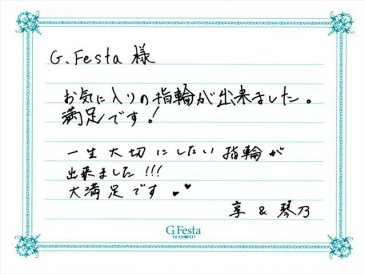 G.Festa 様
お気に入りの指輪が出来ました。
満足です!
一生大切にしたい指輪が
出来ました!!!
大満足です♥♥
享 & 琴乃
G.Festa
DIAMOND